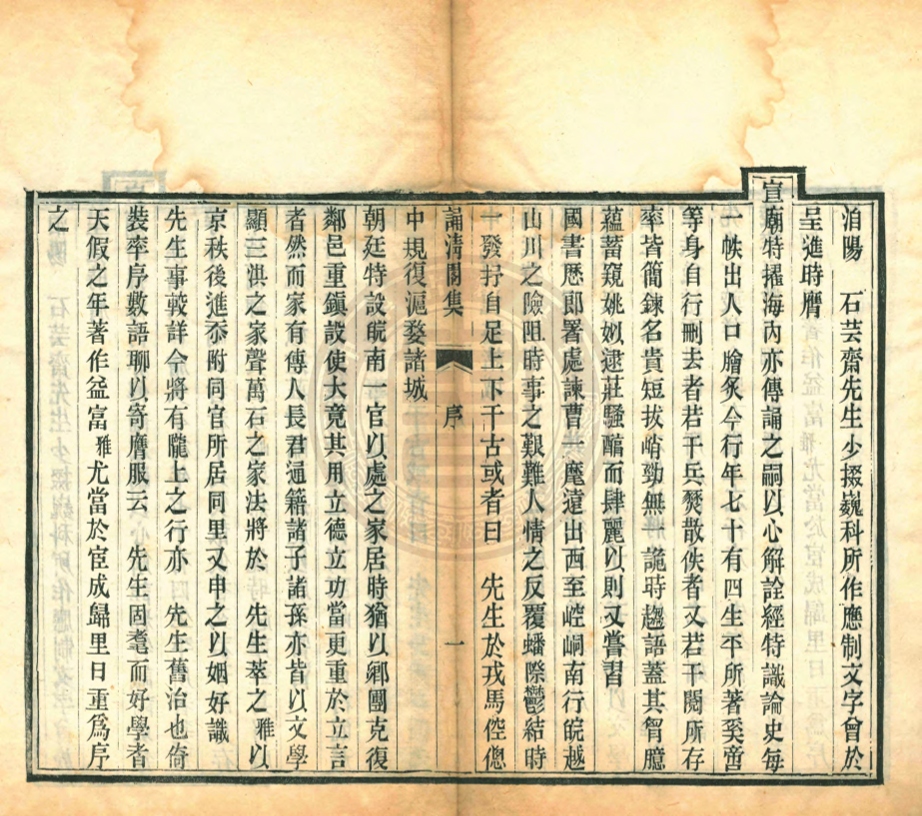 洎陽　石芸齋先生少掇巍科所作應制文字曾於
呈進時膺
宣廟特擢海內亦傳誦之嗣以心解詮經特識論史每
一帙出人口膾炙今行年七十有四生平所著奚啻
等身自行刪去者若干兵燹散佚者又若干閱所存
率皆簡鍊名貴短拔峭勁無將詭時趨語蓋其胷臆
蘊蓄窺姚姒逮莊騷醞而肆麗以則又嘗習
國書歷郎署處諫曹一麾遠出西至崆峒南行皖越
山川之險阻時事之艱難人情之反覆蟠際鬱結時
一發抒自足上下千古或者曰　先生於戎馬倥傯
誦清閣集　序　一
中規復滬婺諸城
朝廷特設皖南一官以處之家居時猶以鄉團克復
鄰邑重鎮設使大竟其用立德立功當更重於立言
者然而家有傳人長君通籍諸子諸孫亦皆以文學
顯三洪之家聲萬石之家法將於　先生萃之雅以
京秩後進忝附同官所居同里又申之以姻好識
先生事較詳今將有隴上之行亦　先生舊治也倚
裝率序數語聊以寄膺服云　先生固耄而好學者
天假之年著作益富雅尤當於宦成歸里日重爲序
之